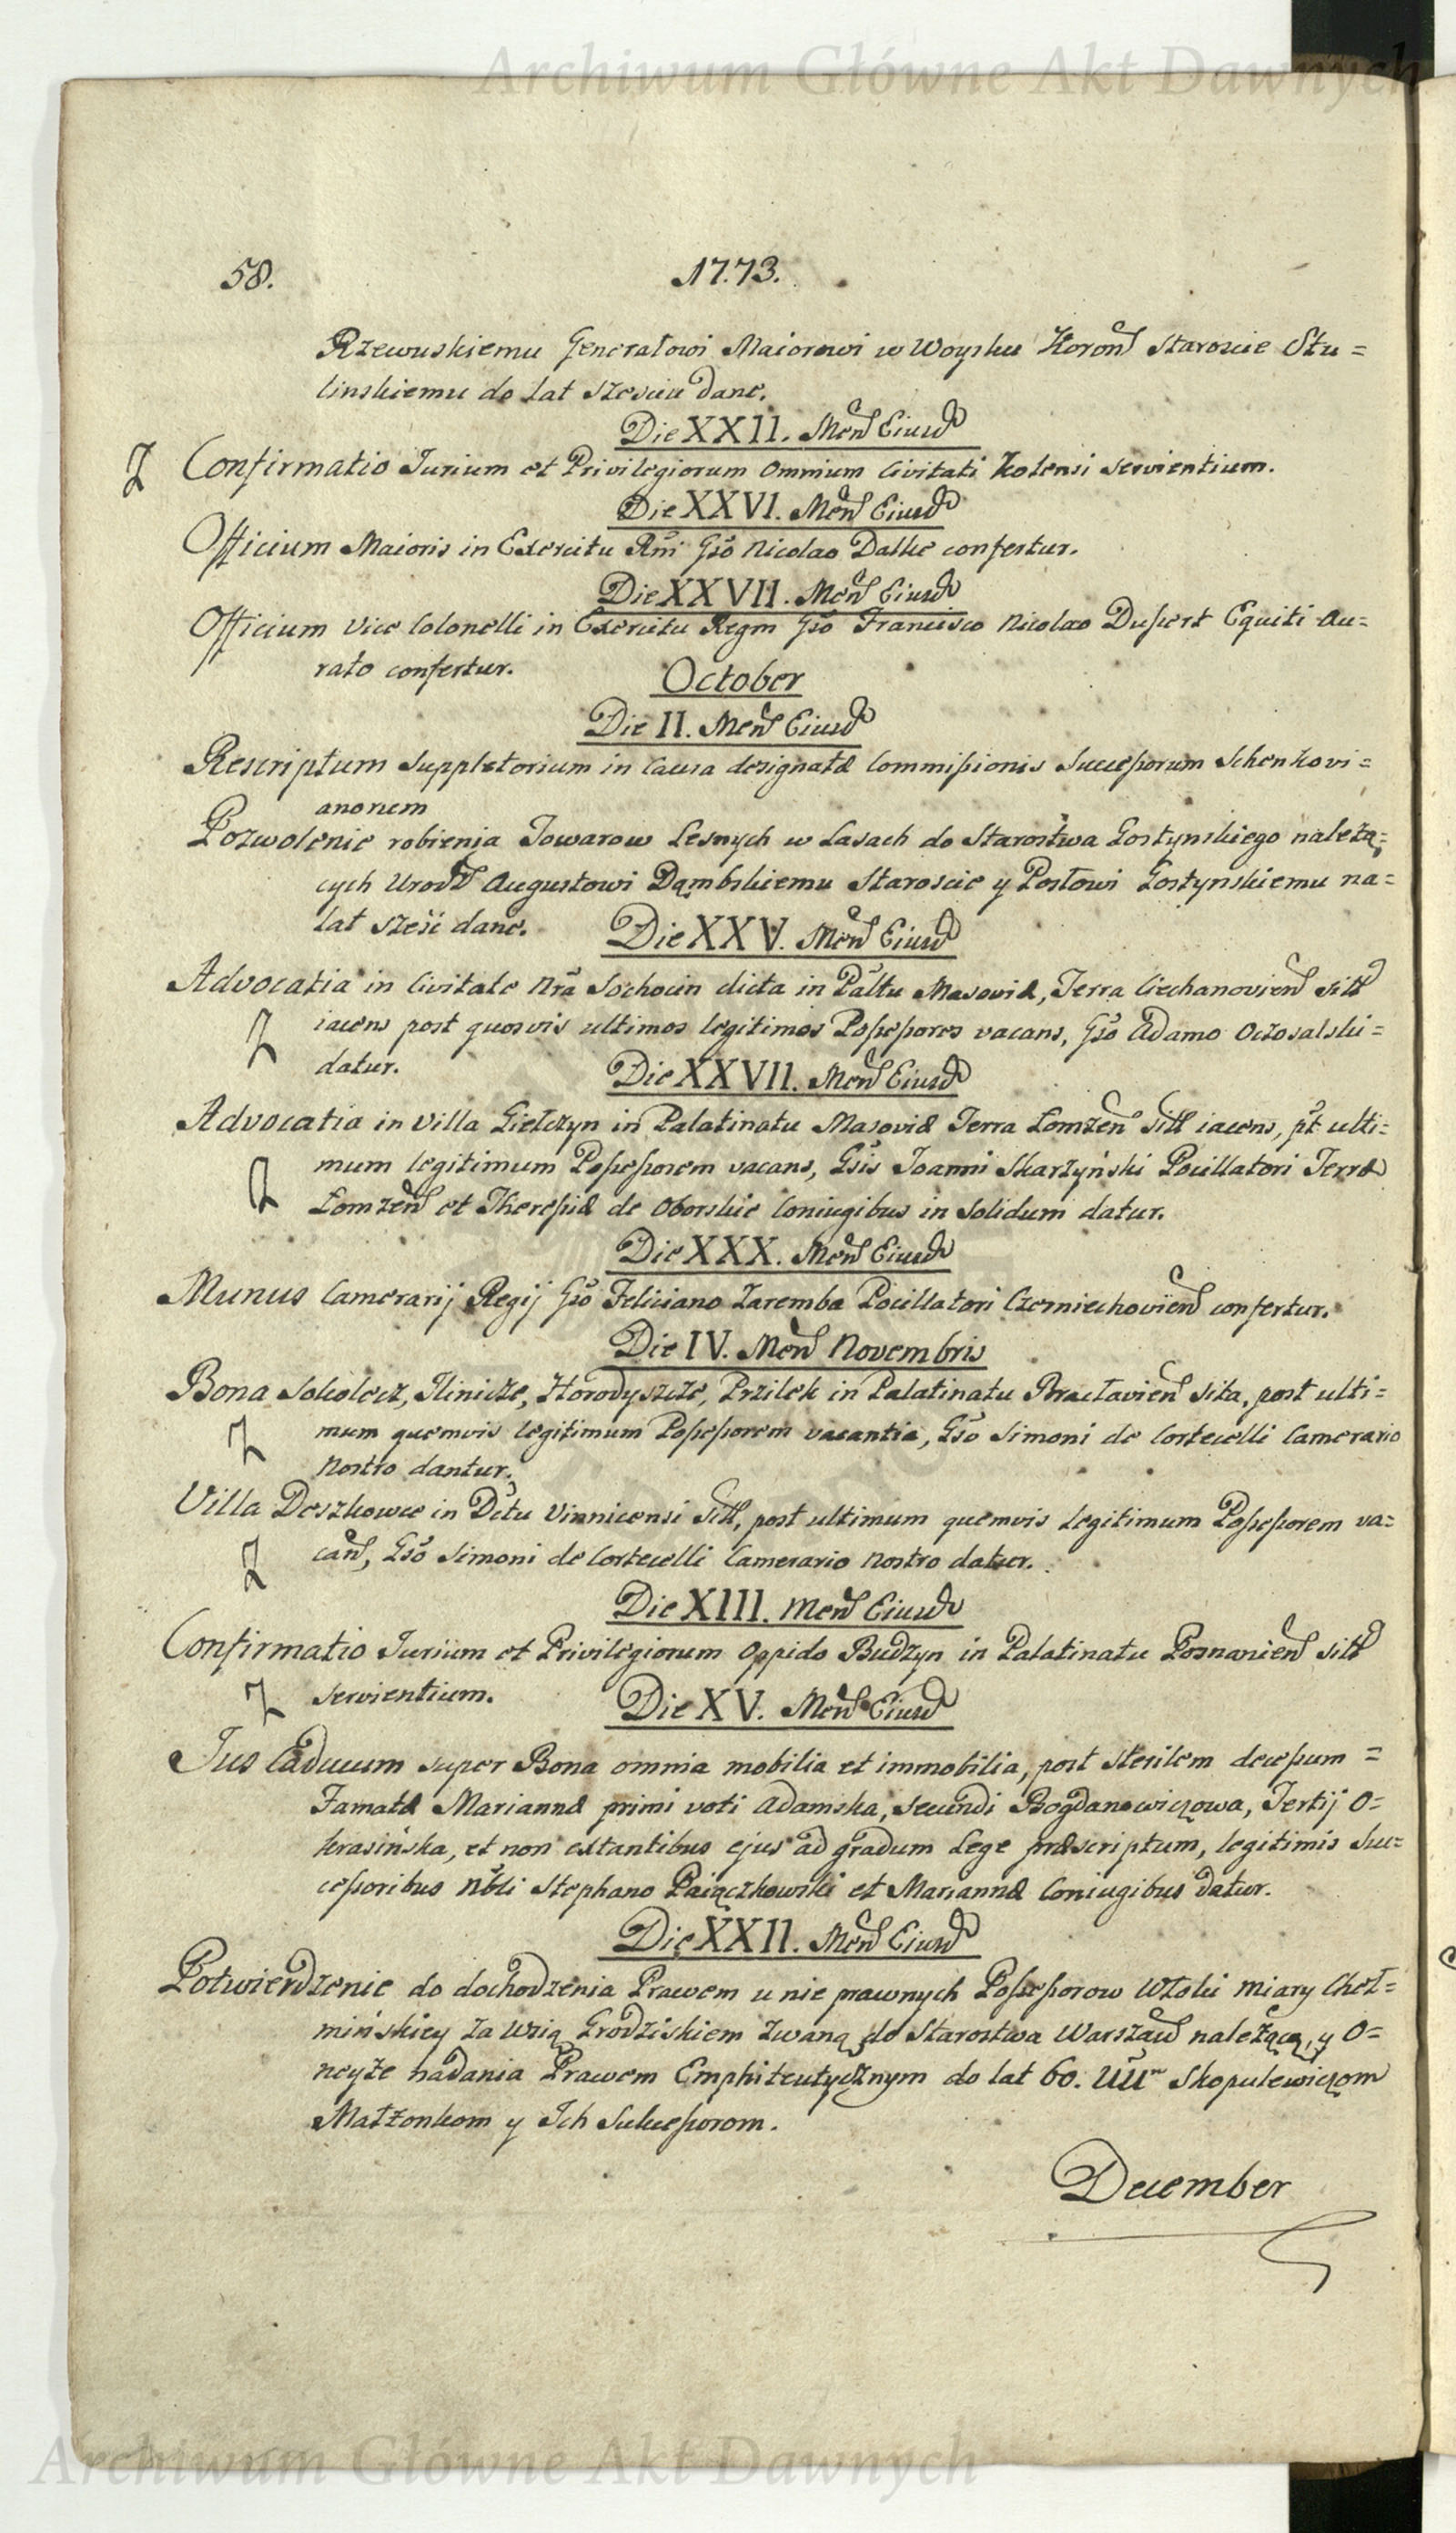 Archiwum Główne Akt Dawnych
58. 1773.
Rzewuskiemu Generałowi Maiorowi w Woysku Koron Staroscie Stu=
linskiemu do lat szesciu dane.
Die XXII. Men Eiusd
Confirmatio Jurium et Privilegiorum omnium Civitati Kolensi servientium.
Die XXVI. Men Eiusd
Officium Maioris in Exercitu Rni Gso Nicolao Dalke confertur.
Die XXVII. Men Eiusd
Officium Vice Colonelli in Exercitu Regni Gso Francisco Nicolao Dupert Equiti Au=
rato confertur.
October
Die II. Men Eiusd
Rescriptum Suppletorium in Causa designatæ Commissionis Successorum Schenkovi=
anorum
Pozwolenie robienia Towarow Lesnych w Lasach do Starostwa Gostynskiego należą=
cych Urodz Augustowi Dąmbskiemu Staroscie y Posłowi Gostynskiemu na=
lat sześć dane.
Die XXV. Men Eiusd
Advocatia in Civitate Nra Sochocin dicta in Pałtu Masoviæ, Terra Ciechanovien sitt
iacens post quosvis ultimos legitimos Possessores vacans, Gso Adamo Oczosalski=
datur.
Die XXVII. Men Eiusd
Advocatia in Villa Giełczyn in Palatinatu Masoviæ Terra Łomżen sitt iacens, pt ulti=
mum legitimum Possessorem vacans, Gsis Joanni Skarżyński Pocillatori Terræ
Łomzen et Theressiæ de Oborskie Coniugibus in solidum datur.
Die XXX. Men Eiusd
Munus Camerarij Regij Gso Feliciano Zaremba Pocillatori Czerniechovien confertur.
Die IV. Men Novembris
Bona Sokolecz, Ilincze, Horodyszcze, Przilek in Palatinatu Bracłavien sita, post ulti=
mum quemvis legitimum Possessorem vacantia, Gso Simoni de Corticelli Camerario
Nostro dantur.
Villa Deszkowce in Dctu Vinnicensi sitt, post ultimum quemvis legitimum Possessorem va=
can, Gso Simoni de Corticelli Camerario Nostro datur.
Die XIII. Men Eiusd
Confirmatio Jurium et Privilegiorum Oppido Budzyn in Palatinatu Posnanien sitt
servientium.
Die XV. Men Eiusd
Jus Caducum super Bona omnia mobilia et immobilia, post sterilem decessum =
Famatæ Mariannæ primi voti Adamska, secundi Bogdanowiczowa, Tertij O=
krasińska, et non extantibus ejus ad gradum Lege præscriptum, legitimis Suc=
cessoribus Nbli Stephano Paiączkowski et Mariannæ Coniugibus datur.
Die XXII. Men Eiusd
Potwierdzenie do dochodzenia Prawem u nie prawnych Possessorow Włoki miary Cheł=
mińskiey za Wsią Grodziskiem zwaną do Starostwa Warszaw należącą, y O=
neyże nadania Prawem Emphiteutycznym do lat 60. UU Skopulewiczom
Małżonkom y Ich Sukcessorom.
December
Archiwum Główne Akt Dawnych